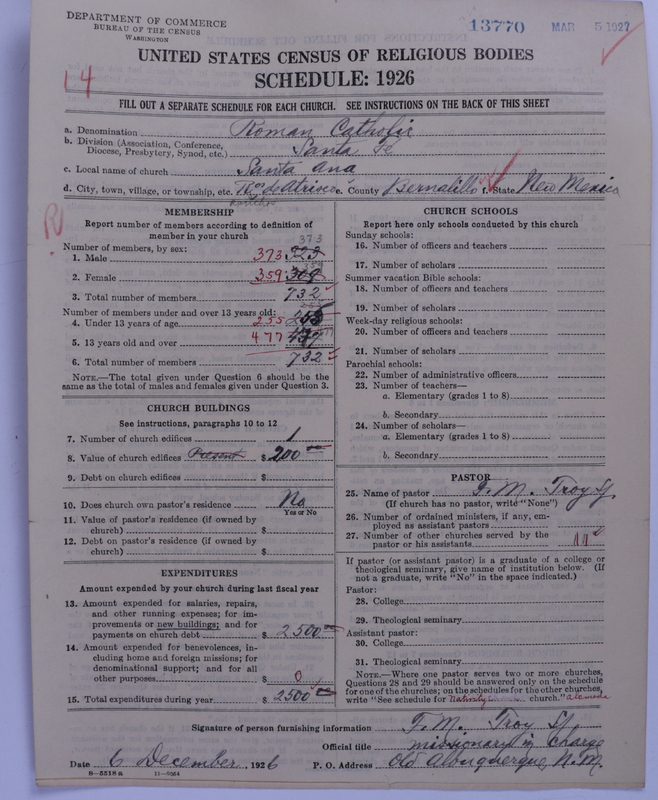 DEPARTMENT OF COMMERCE
BUREAU OF THE CENSUS
WASHINGTON
13770 MAR 5 1927
UNITED STATES CENSUS OF RELIGIOUS BODIES
SCHEDULE: 1926
14
FILL OUT A SEPARATE SCHEDULE FOR EACH CHURCH. SEE INSTRUCTIONS ON THE BACK OF THIS SHEET
a. Denomination Roman Catholic
b. Division (Association, Conference, Diocese, Presbytery, Synod, etc.) Santa Fe
c. Local name of church Santa Ana
d. City, town, village, or township, etc. Ros de Atrisco e. County Bernalillo f. State New Mexico
Ranchos
R
MEMBERSHIP
Report number of members according to definition of
member in your church
373
Number of members, by sex:
1. Male 373 323
2. Female 359 309
3. Total number of members 732
Number of members under and over 13 years old:
4. Under 13 years of age 255
5. 13 years old and over 477
6. Total number of members 732
NOTE.—The total given under Question 6 should be the
same as the total of males and females given under Question 3.
CHURCH BUILDINGS
See instructions, paragraphs 10 to 12
7. Number of church edifices 1
8. Value of church edifices Present $ 200
9. Debt on church edifices $
10. Does church own pastor's residence No
Yes or No
11. Value of pastor's residence (if owned by
church) $
12. Debt on pastor's residence (if owned by
church) $
EXPENDITURES
Amount expended by your church during last fiscal year
13. Amount expended for salaries, repairs,
and other running expenses; for im-
provements or new buildings; and for
payments on church debt $ 2500
14. Amount expended for benevolences, in-
cluding home and foreign missions; for
denominational support; and for all
other purposes $ 0
15. Total expenditures during year $ 2500
CHURCH SCHOOLS
Report here only schools conducted by this church
Sunday schools:
16. Number of officers and teachers
17. Number of scholars
Summer vacation Bible schools:
18. Number of officers and teachers
19. Number of scholars
Week-day religious schools:
20. Number of officers and teachers
21. Number of scholars
Parochial schools:
22. Number of administrative officers
23. Number of teachers—
a. Elementary (grades 1 to 8)
b. Secondary
24. Number of scholars—
a. Elementary (grades 1 to 8)
b. Secondary
PASTOR
25. Name of pastor F. M. Troy SJ
(If church has no pastor, write "None")
26. Number of ordained ministers, if any, em-
ployed as assistant pastors
27. Number of other churches served by the
pastor or his assistants 11
If pastor (or assistant pastor) is a graduate of a college or
theological seminary, give name of institution below. (If
not a graduate, write "No" in the space indicated.)
Pastor:
28. College
29. Theological seminary
Assistant pastor:
30. College
31. Theological seminary
NOTE.—Where one pastor serves two or more churches,
Questions 28 and 29 should be answered only on the schedule
for one of the churches; on the schedules for the other churches,
write "See schedule for Nativity church." Alameda
Signature of person furnishing information F. M. Troy SJ
Official title missionary in charge
Date 6 December, 1926 P. O. Address Old Albuquerque, N.M.
8-5518a 11-9564